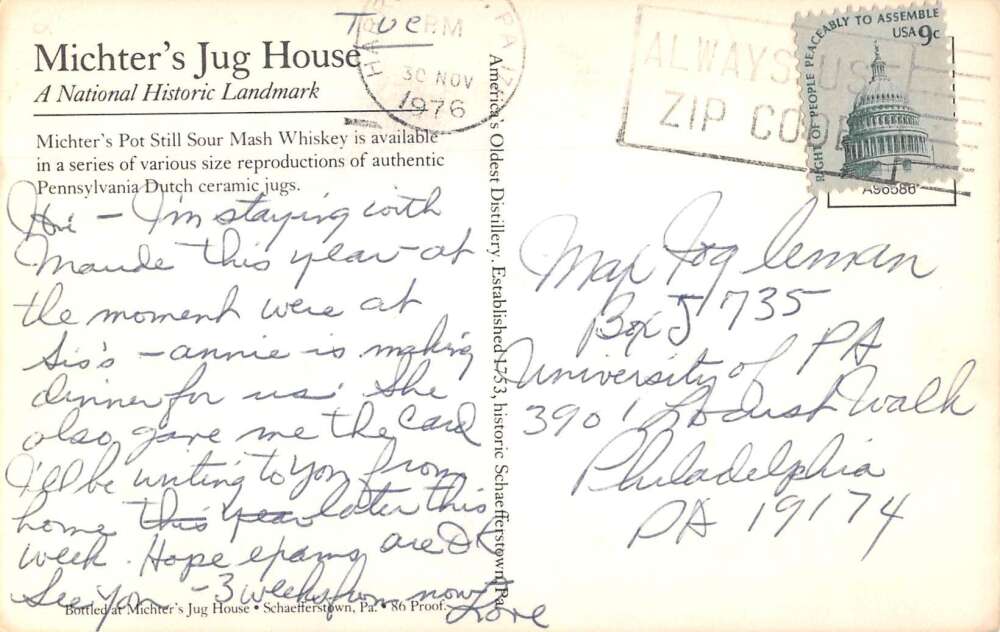 Michter's Jug House
A National Historic Landmark
Michter's Pot Still Sour Mash Whiskey is available
in a series of various size reproductions of authentic
Pennsylvania Dutch ceramic jugs.
Tue
PM
30 NOV
1976
HA
PA
ALWAYS USE
ZIP CODE
RIGHT OF PEOPLE PEACEABLY TO ASSEMBLE
USA 9c
A96586
Hi - I'm staying with
Maude this year - at
the moment were at
Sis's - annie is making
dinner for us. She
also gave me the card
I'll be writing to you from
home this year later this
week. Hope exams are OK
See you - 3 weeks from now
Love
Bottled at Michter's Jug House • Schaefferstown, Pa. • 86 Proof.
America's Oldest Distillery. Established 1753, historic Schaefferstown, Pa.
Max
Box 5735
University of PA
3901 Locust Walk
Philadelphia
PA 19174